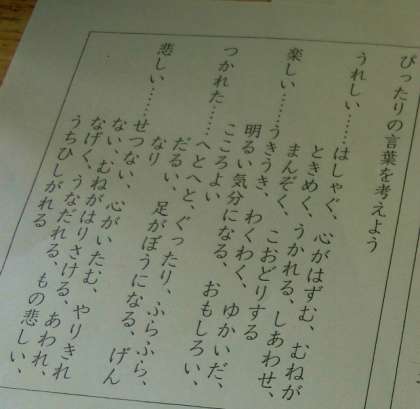 ぴったりの言葉を考えよう
うれしい……はしゃぐ、心がはずむ、むねが
ときめく、うかれる、しあわせ、
まんぞく、こおどりする
楽しい……うきうき、わくわく、ゆかいだ、
明るい気分になる、おもしろい、
こころよい
つかれた……へとへと、ぐったり、ふらふら、
だるい、足がぼうになる、げん
なり
悲しい……せつない、心がいたむ、やりきれ
ない、むねがはりさける、あわれ、
なげく、うなだれる、もの悲しい、
うちひしがれる